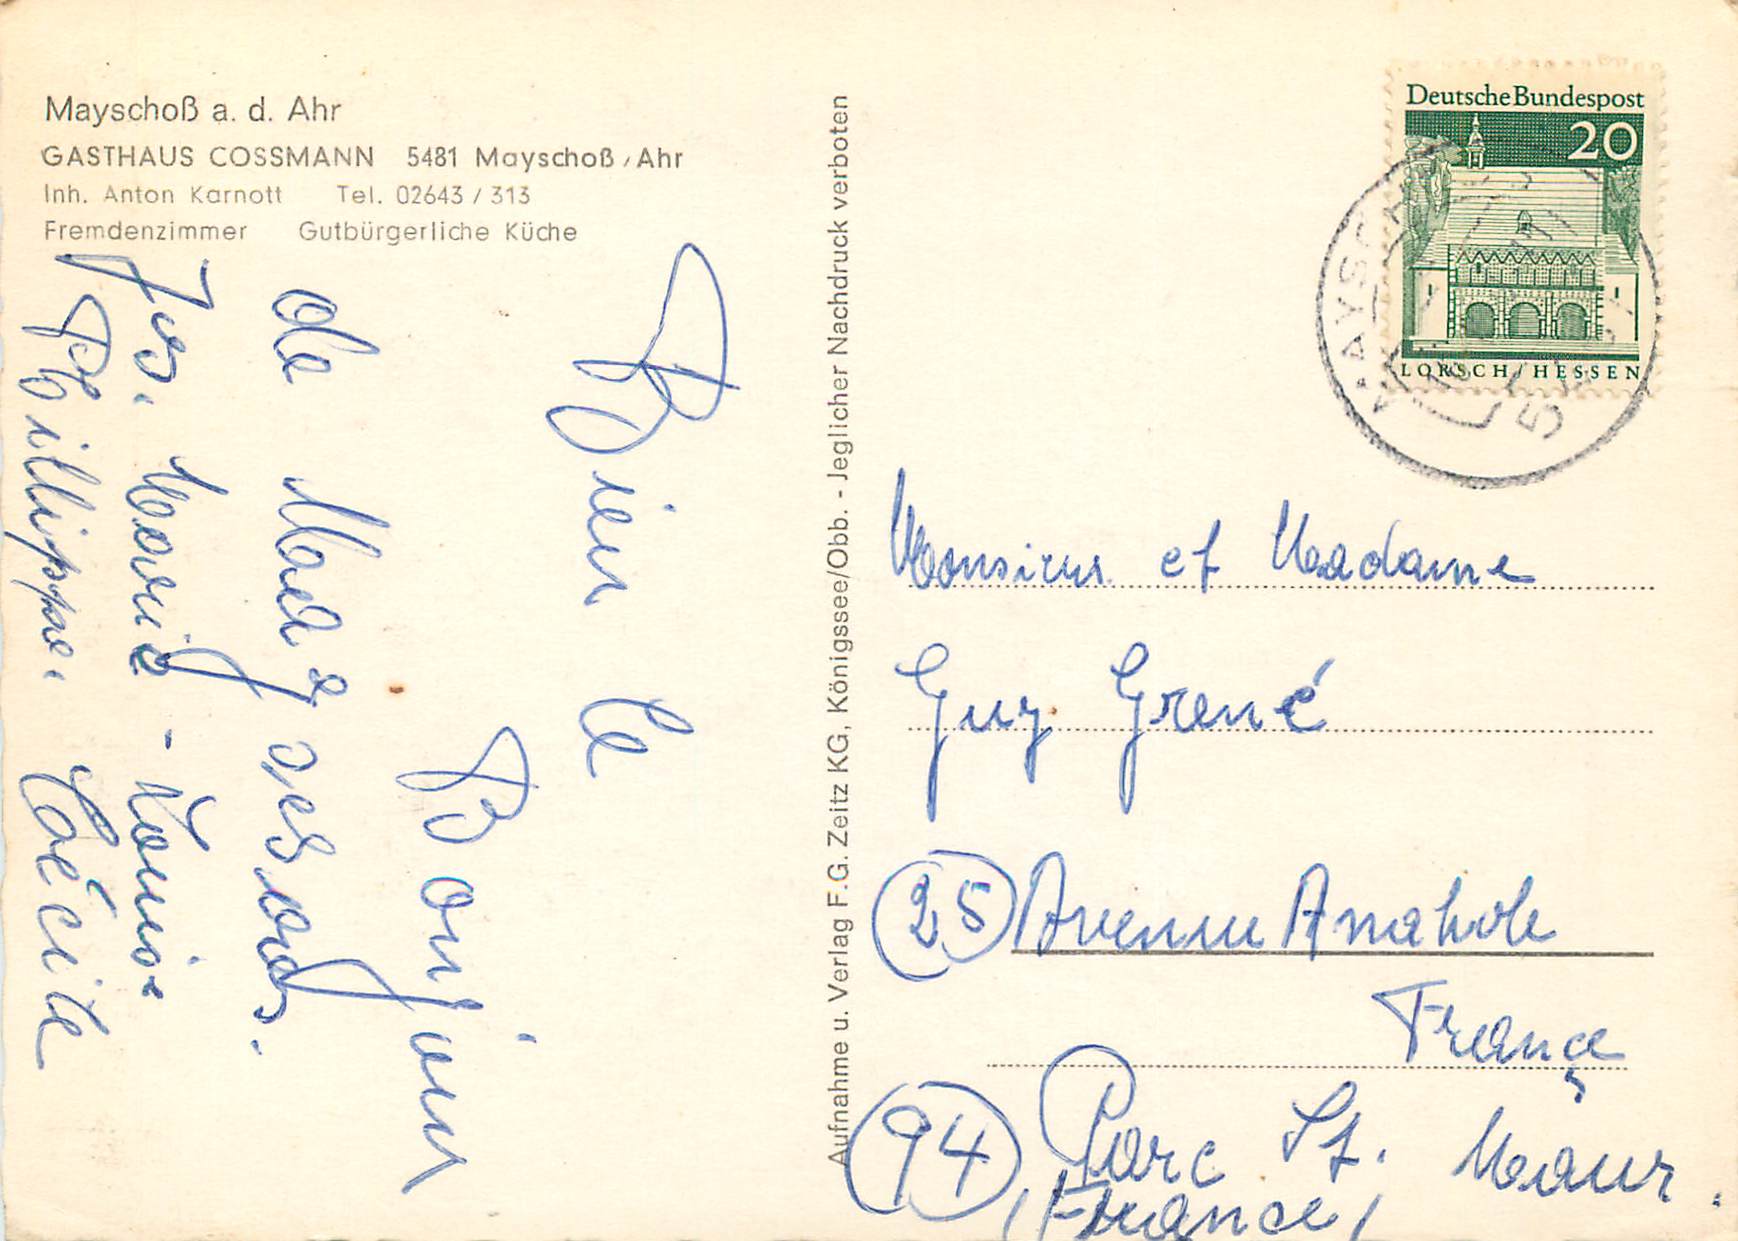 Mayschoß a. d. Ahr
GASTHAUS COSSMANN 5481 Mayschoß/Ahr
Inh. Anton Karnott Tel. 02643 / 313
Fremdenzimmer Gutbürgerliche Küche
Bien le
Bonjour
de
Jos. Marie - Louise
Philippe. Cécile
Aufnahme u. Verlag F.G. Zeitz KG, Königssee/Obb. - Jeglicher Nachdruck verboten
Deutsche Bundespost
20
LORSCH/HESSEN
MAYSCH
5
Monsieur et Madame
Guy Grené
25 Avenue Anatole
France
94 Parc St. Maur.
(France)